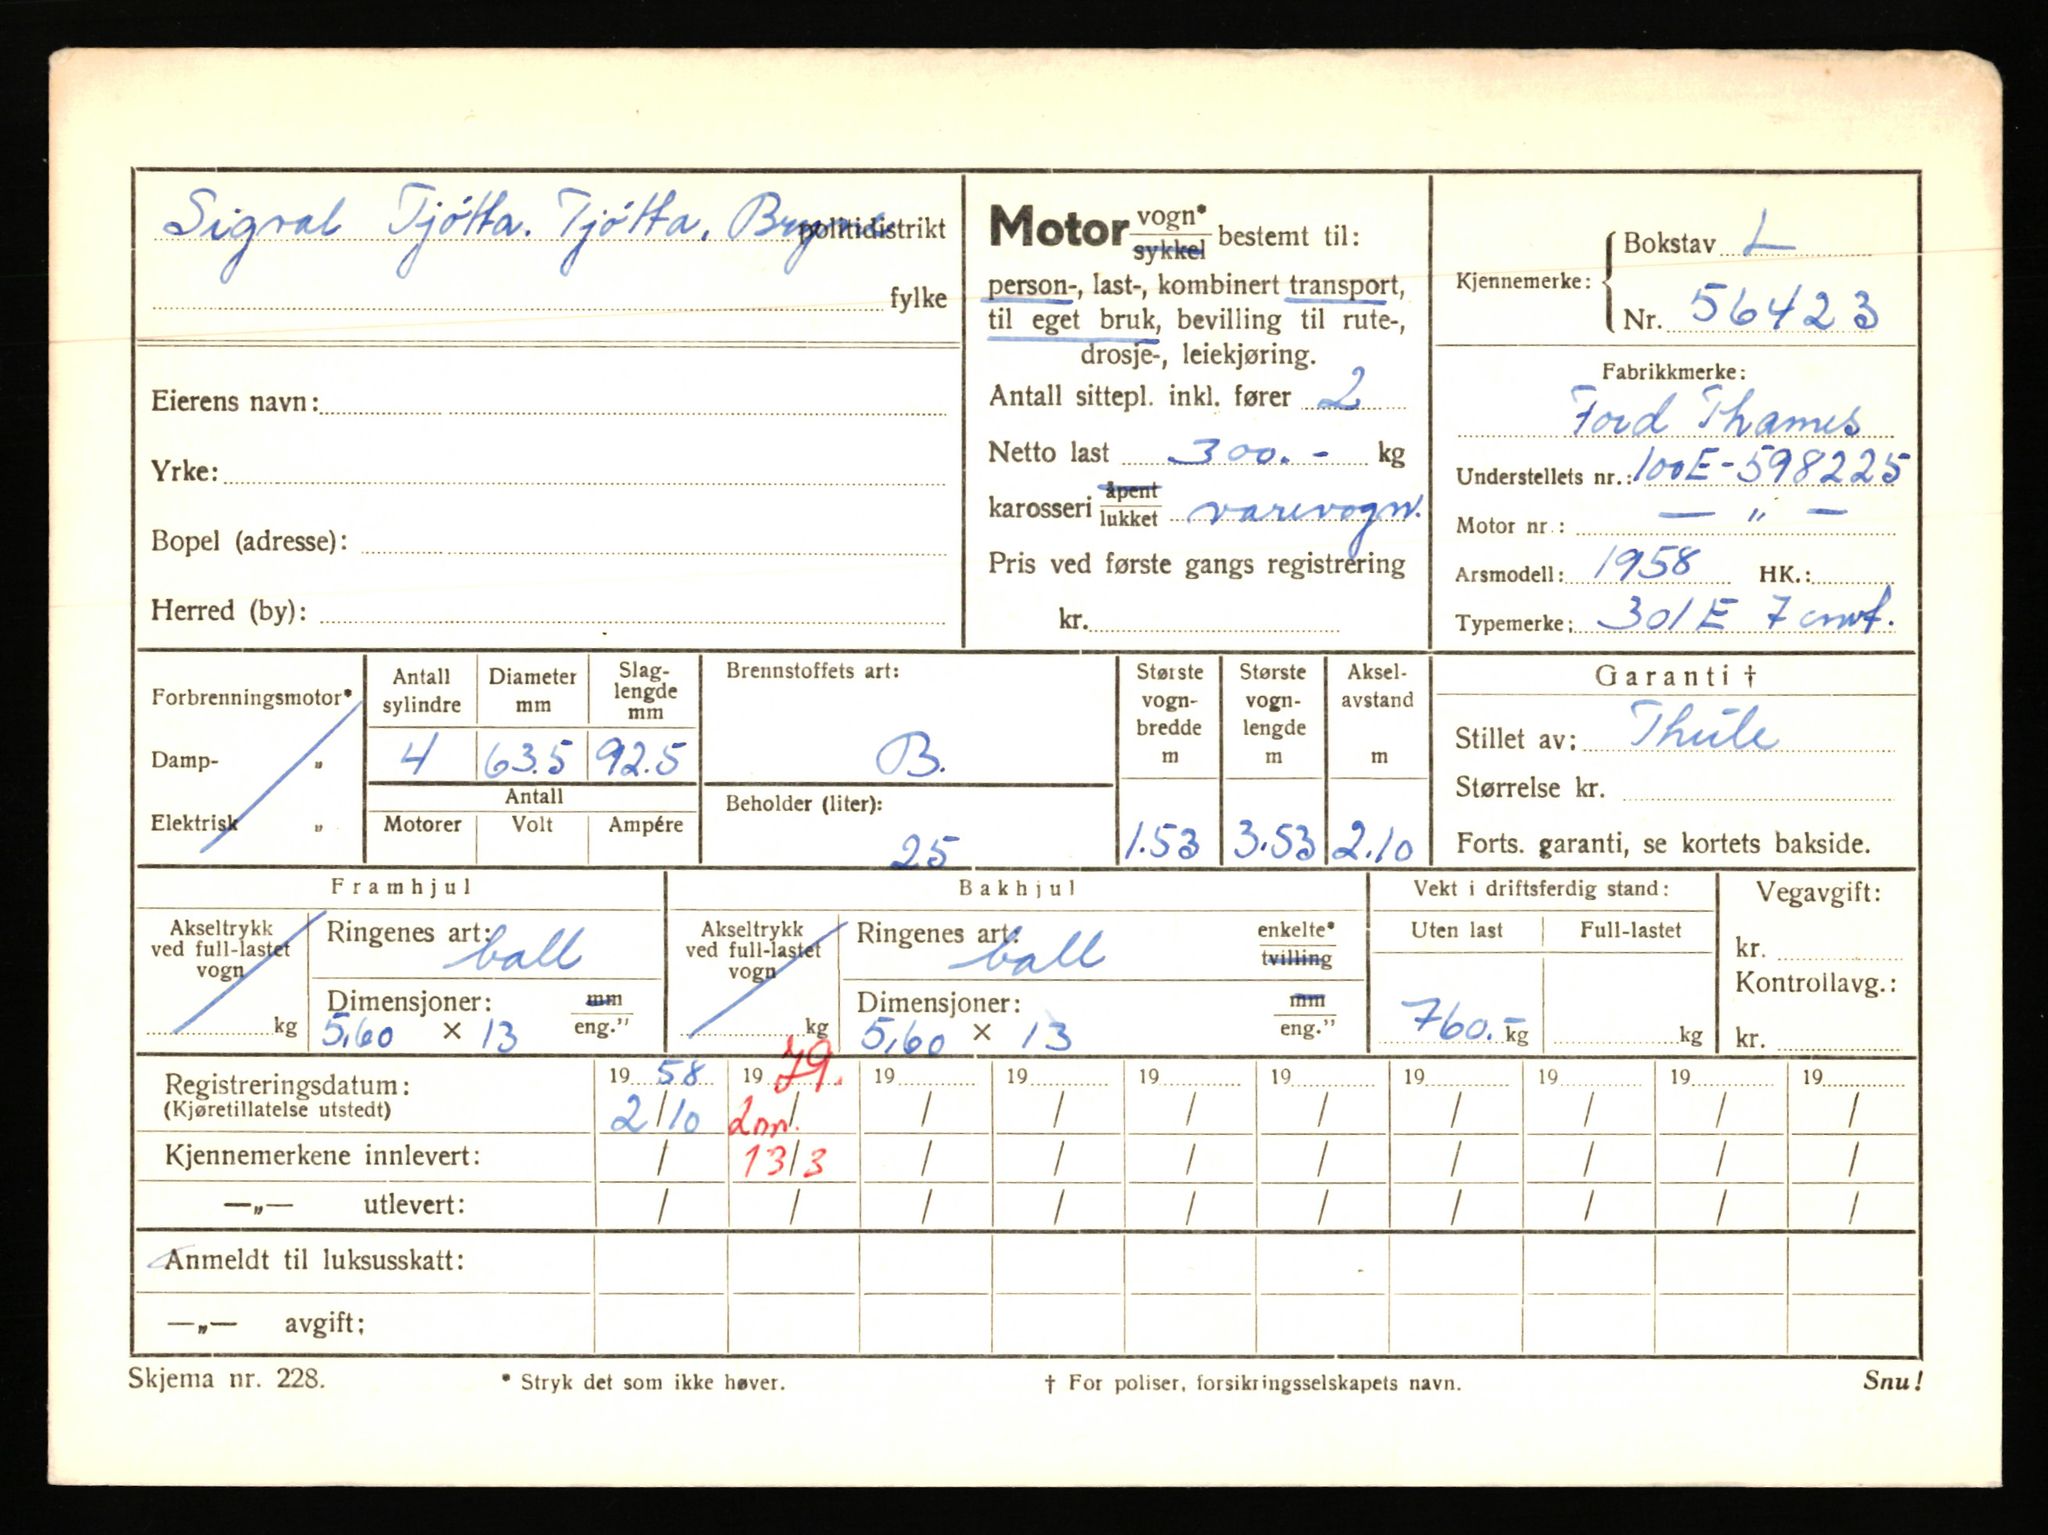 Sigval Tjøtta. Tjøtta, Bryne politidistrikt
fylke
Eierens navn:
Yrke:
Bopel (adresse):
Herred (by):
Motor vogn* sykkel bestemt til:
person-, last-, kombinert transport,
til eget bruk, bevilling til rute-,
drosje-, leiekjøring.
Antall sittepl. inkl. fører 2
Netto last 300.- kg
karosseri åpent lukket varevogn.
Pris ved første gangs registrering
kr.
Kjennemerke: Bokstav L
Nr. 56423
Fabrikkmerke:
Ford Thames
Understellets nr.: 100E-598225
Motor nr.: — „ —
Arsmodell: 1958 HK.:
Typemerke: 301E 7 cwt.
Forbrenningsmotor*
Damp- „
Elektrisk „
Antall sylindre Diameter mm Slag-lengde mm
4 63.5 92.5
Antall
Motorer Volt Ampére
Brennstoffets art:
B.
Beholder (liter):
25
Største vogn-bredde m
1.53
Største vogn-lengde m
3.53
Aksel-avstand m
2.10
Garanti †
Stillet av: Thule
Størrelse kr.
Forts. garanti, se kortets bakside.
Framhjul
Akseltrykk ved full-lastet vogn
kg
Ringenes art: ball
Dimensjoner: mm eng."
5,60 × 13
Bakhjul
Akseltrykk ved full-lastet vogn
kg
Ringenes art: ball enkelte* tvilling
Dimensjoner: mm eng."
5,60 × 13
Vekt i driftsferdig stand:
Uten last Full-lastet
760.- kg kg
Vegavgift:
kr.
Kontrollavg.:
kr.
Registreringsdatum: 19 58 19 79. 19 19 19 19 19 19 19 19
(Kjøretillatelse utstedt) 2/10 / / / / / / / / /
Kjennemerkene innlevert: / 13/3 / / / / / / / /
—„— utlevert: / / / / / / / / / /
Anmeldt til luksusskatt:
—„— avgift:
Skjema nr. 228. * Stryk det som ikke høver. † For poliser, forsikringsselskapets navn. Snu!